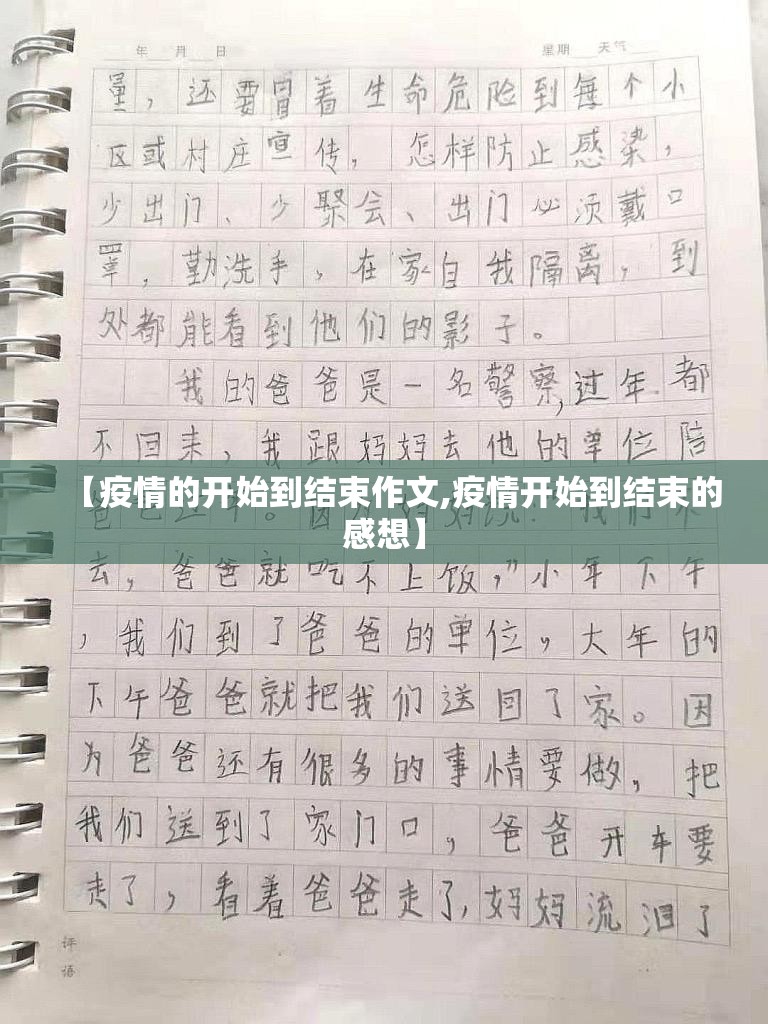 年 月 日 星期 天气
量，还要冒着生命危险到每个小
区或村庄宣传，怎样防止感染，
少出门、少聚会、出门必须戴口
罩，勤洗手，在家自我隔离，到
处都能看到他们的影子。
我的爸爸是一名警察,过年都
不回来，我跟妈妈去他的单位陪
【疫情的开始到结束作文,疫情开始到结束的
感想】
去，爸爸就吃不上饭，”小年下午
，我们到了爸爸的单位，大年的
下午爸爸就把我们送回了家。因
为爸爸还有很多的事情要做，把
我们送到了家门口，爸爸开车要
走了，看着爸爸走了,妈妈流泪了
评
语